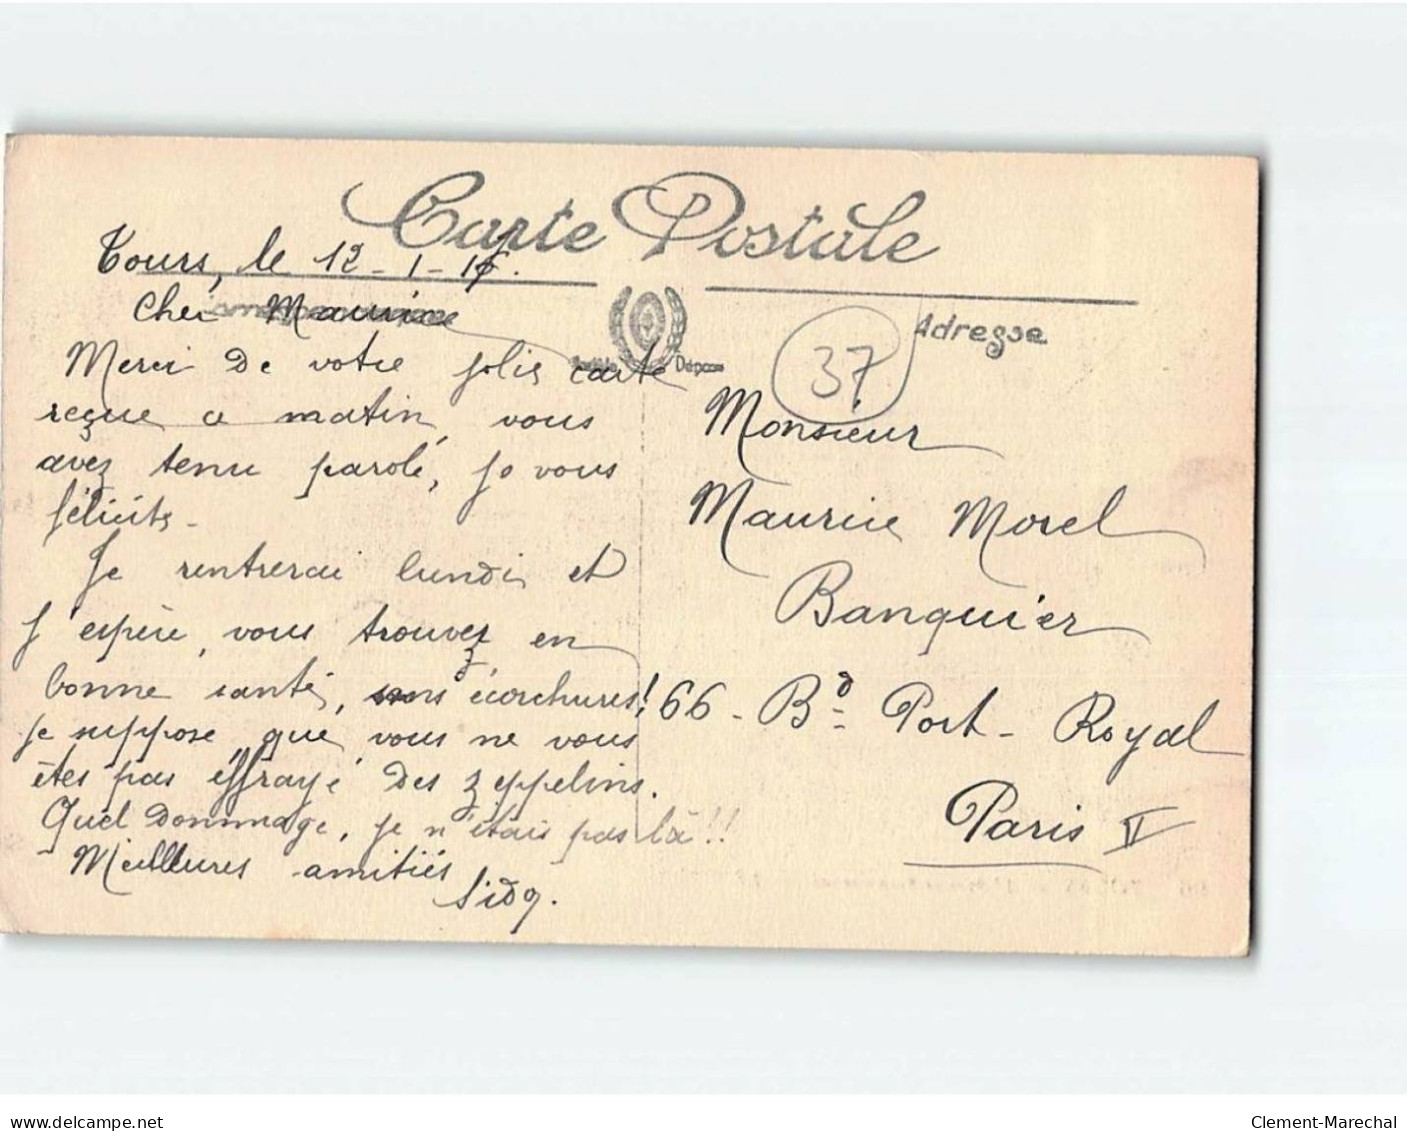 Carte Postale
Tours, le 12-1-
Cher Maurice
Merci de votre jolie carte
reçue ce matin, vous
avez tenu parole, je vous
félicite.
Je rentrerai lundi et
j'espère, vous trouver en
bonne santé, sans écorchures!
je suppose que vous ne vous
êtes pas effrayé des zeppelins.
Quel dommage, je n'étais pas là!!
Meilleures amitiés
Déposé
37
Adresse
Monsieur
Maurice Morel
Banquier
66 - Bd Port-Royal
Paris V
delcampe.net
Clement-Marechal